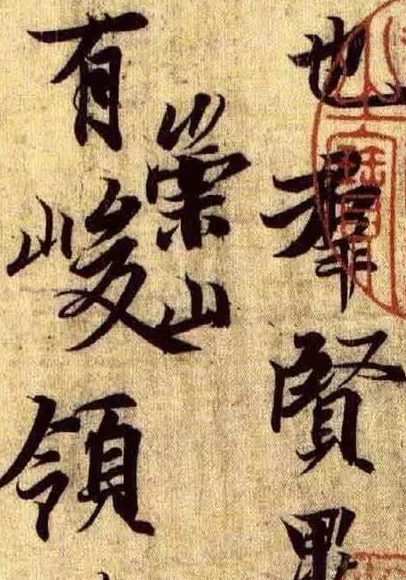 也羣賢畢
崇山
有峻領